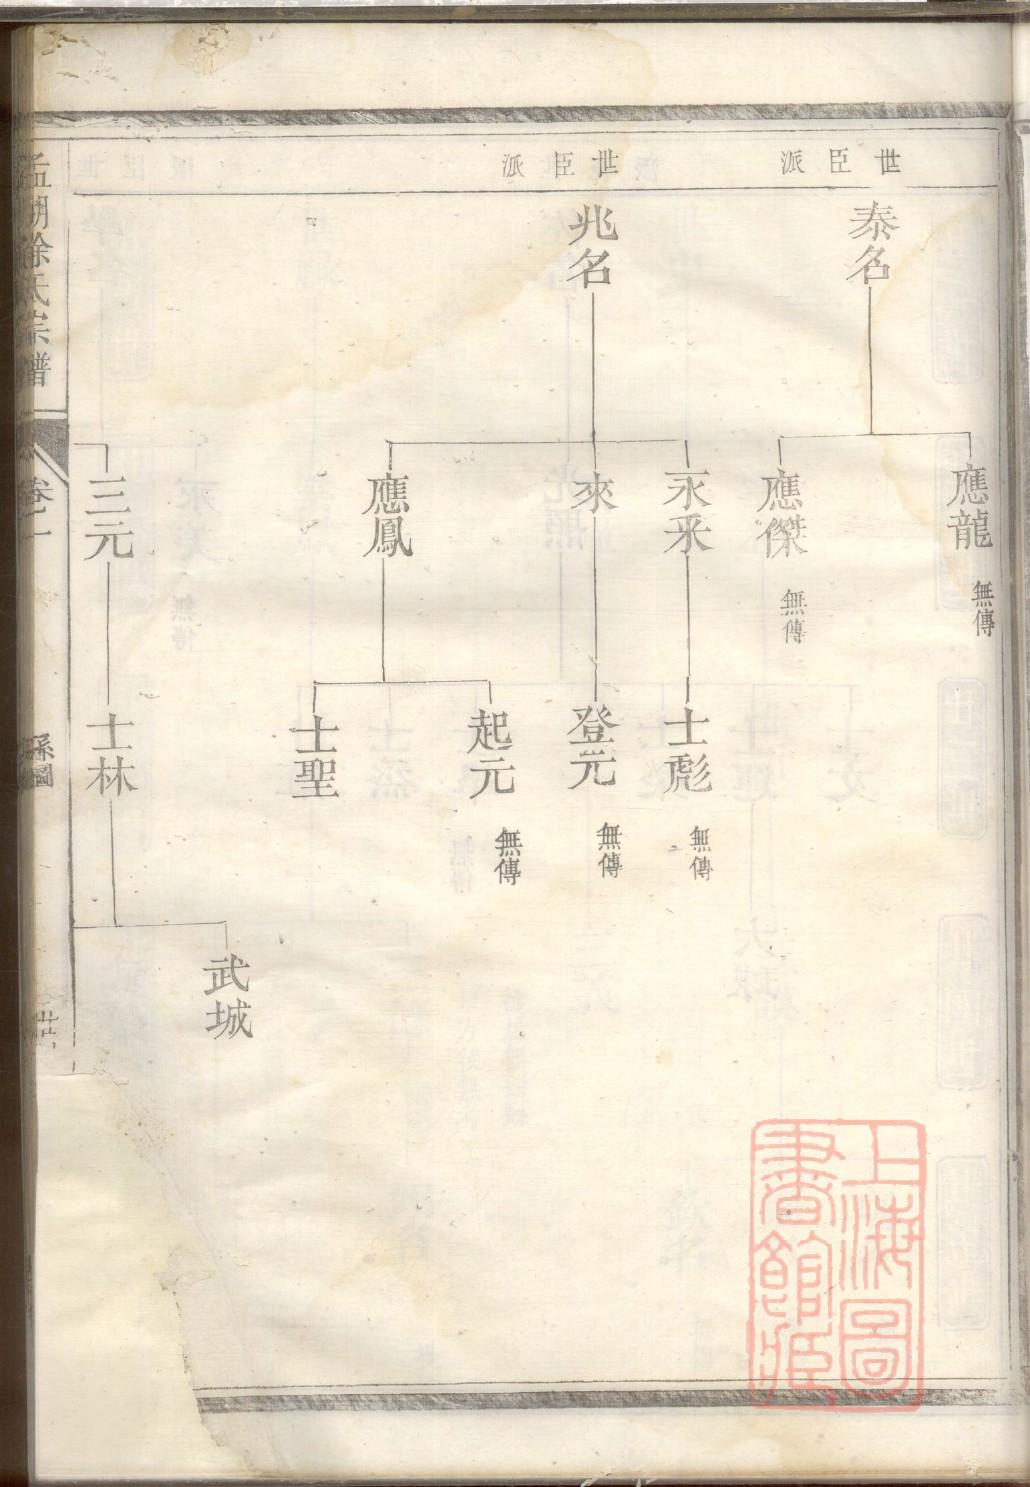 世臣派
世臣派
泰名
應龍
無傳
應傑
無傳
兆名
永采
士彪
無傳
來
登元
無傳
應鳳
起元
無傳
士聖
三元
士林
武城
孟湖徐氏宗譜
卷二
系圖
上海圖書館藏